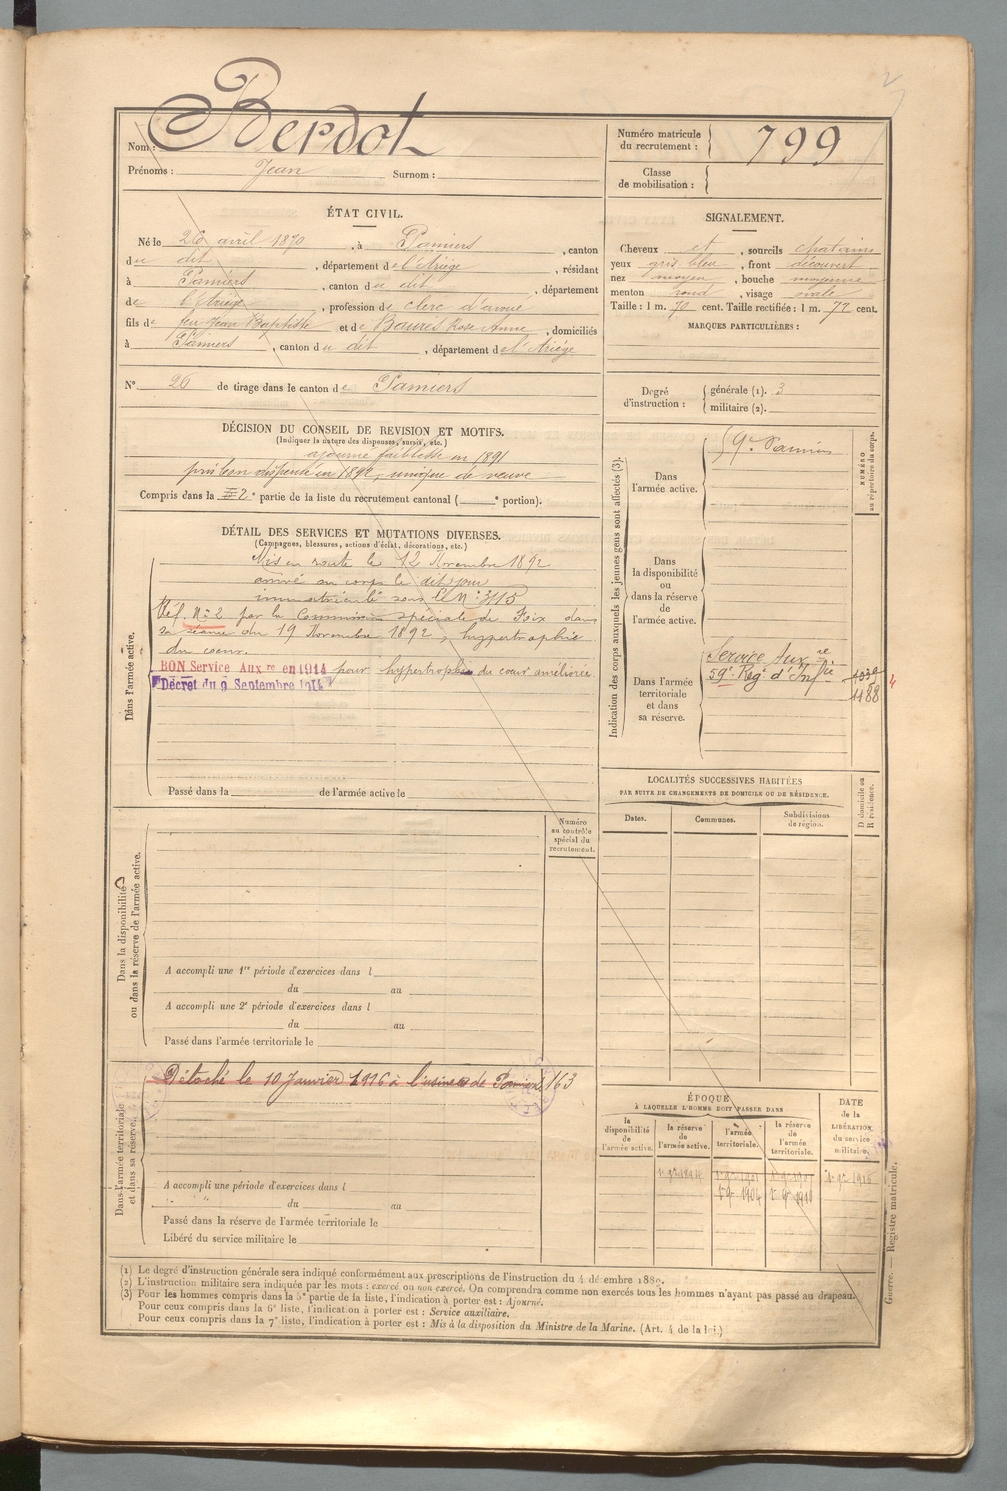 Nom : Berdot
Prénoms : Jean Surnom :
Numéro matricule du recrutement : 799
Classe de mobilisation :
ÉTAT CIVIL.
Né le 26 avril 1870, à Pamiers, canton
du dit, département de l'Ariège, résidant
à Pamiers, canton du dit, département
de l'Ariège, profession de clerc d'avoué
fils de feu Jean Baptiste et de Baurès Rose Anne, domiciliés
à Pamiers, canton du dit, département de l'Ariège
SIGNALEMENT.
Cheveux et, sourcils chatains
yeux gris bleu, front découvert
nez moyen, bouche moyenne
menton rond, visage ovale
Taille : 1 m. 70 cent. Taille rectifiée : 1 m. 77 cent.
MARQUES PARTICULIÈRES :
N° 26 de tirage dans le canton de Pamiers
Degré d'instruction : générale (1). 3
militaire (2).
DÉCISION DU CONSEIL DE REVISION ET MOTIFS.
(Indiquer la nature des dispenses, sursis, etc.)
ajourné faiblesse en 1891
pris bon dispensé en 1892, unique de veuve
Compris dans la 2e partie de la liste du recrutement cantonal ( e portion).
DÉTAIL DES SERVICES ET MUTATIONS DIVERSES.
(Campagnes, blessures, actions d'éclat, décorations, etc.)
Dans l'armée active.
Mis en route le 12 Novembre 1892
arrivé au corps le dit jour
immatriculé sous le N°
Réf. N° 2 par la Commission spéciale de Foix dans
sa séance du 19 Novembre 1892, hypertrophie
du coeur.
BON Service Aux re en 1914 pour hypertrophie du cœur améliorée
Décret du 9 Septembre 1914
Passé dans la de l'armée active le
Indication des corps auxquels les jeunes gens sont affectés (3).
NUMÉRO au répertoire du corps.
Dans l'armée active.
59e Pamiers
Dans la disponibilité ou dans la réserve de l'armée active.
Dans l'armée territoriale et dans sa réserve.
Service Aux re
59e Reg. d'Infie
1188
4
LOCALITÉS SUCCESSIVES HABITÉES
PAR SUITE DE CHANGEMENTS DE DOMICILE OU DE RÉSIDENCE.
Dates. Communes. Subdivisions de région. D domicile ou R résidence.
Dans la disponibilité ou dans la réserve de l'armée active.
Numéro au contrôle spécial du recrutement.
A accompli une 1re période d'exercices dans l
du au
A accompli une 2e période d'exercices dans l
du au
Passé dans l'armée territoriale le
Dans l'armée territoriale et dans sa réserve.
Détaché le 10 Janvier 1916 à l'usine de Pamiers 163
A accompli une période d'exercices dans l
du au
Passé dans la réserve de l'armée territoriale le
Libéré du service militaire le
ÉPOQUE
À LAQUELLE L'HOMME DOIT PASSER DANS
la disponibilité de l'armée active.
la réserve de l'armée active.
l'armée territoriale.
la réserve de l'armée territoriale.
DATE de la LIBÉRATION du service militaire.
Guerre. — Registre matricule.
(1) Le degré d'instruction générale sera indiqué conformément aux prescriptions de l'instruction du 4 décembre 1889.
(2) L'instruction militaire sera indiquée par les mots : exercé ou non exercé. On comprendra comme non exercés tous les hommes n'ayant pas passé au drapeau.
(3) Pour les hommes compris dans la 5e partie de la liste, l'indication à porter est : Ajourné.
Pour ceux compris dans la 6e liste, l'indication à porter est : Service auxiliaire.
Pour ceux compris dans la 7e liste, l'indication à porter est : Mis à la disposition du Ministre de la Marine. (Art. 4 de la loi.)